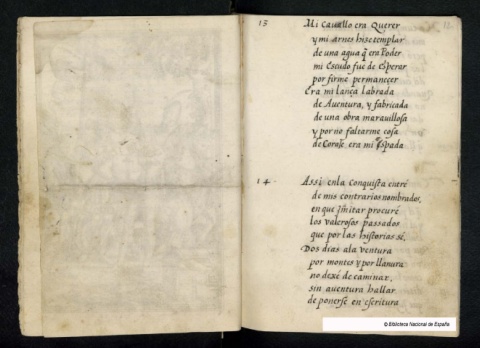 13
Mi Cauallo era Querer
y mi arnes hize templar
de una agua q̃ era Poder
mi Escudo fue de Esperar
por firme permaneçer
Era mi lança labrada
de Auentura, y fabricada
de una obra marauillosa
y por no faltarme cosa
de Coraje era mi Espada
14.
Assi enla Conquista entré
de mis contrarios nombrados,
en que ymitar procuré
los valerosos passados
que por las historias sé.
Dos dias ala ventura
por montes y por llanura
no dexé de caminar,
sin auentura hallar
de ponerse en escritura
© Biblioteca Nacional de España